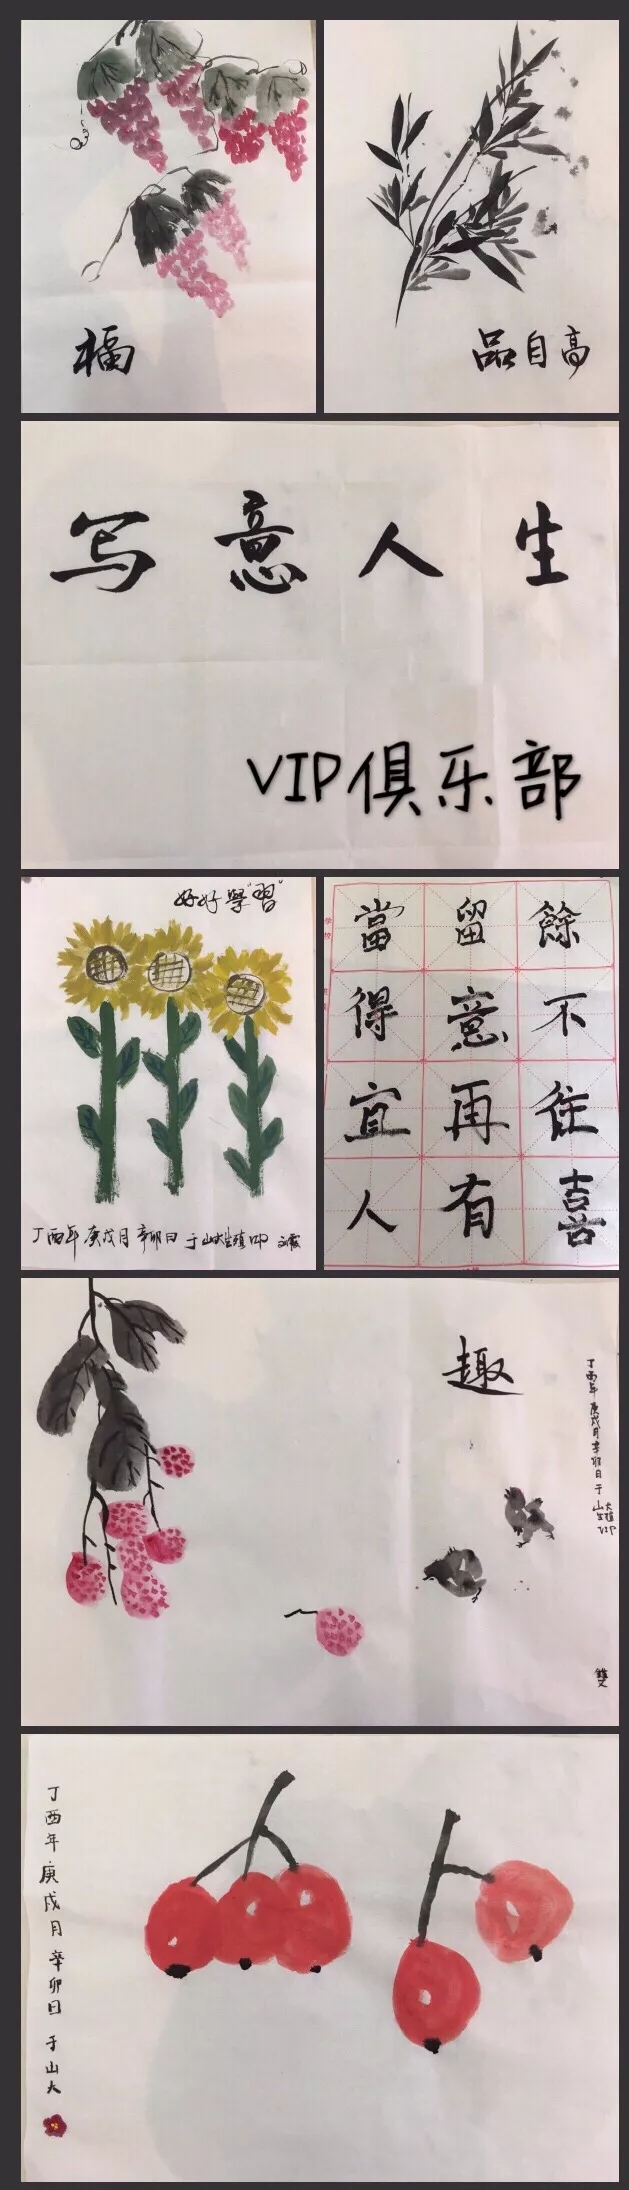 福
品自高
写意人生
VIP俱乐部
好好學“習”
丁酉年 庚戌月 辛卯日 于山大
當留餘
得意不
宜再往
人有喜
趣
丁酉年 庚戌月 辛卯日 于山大
雙
丁酉年 庚戌月 辛卯日 于山大